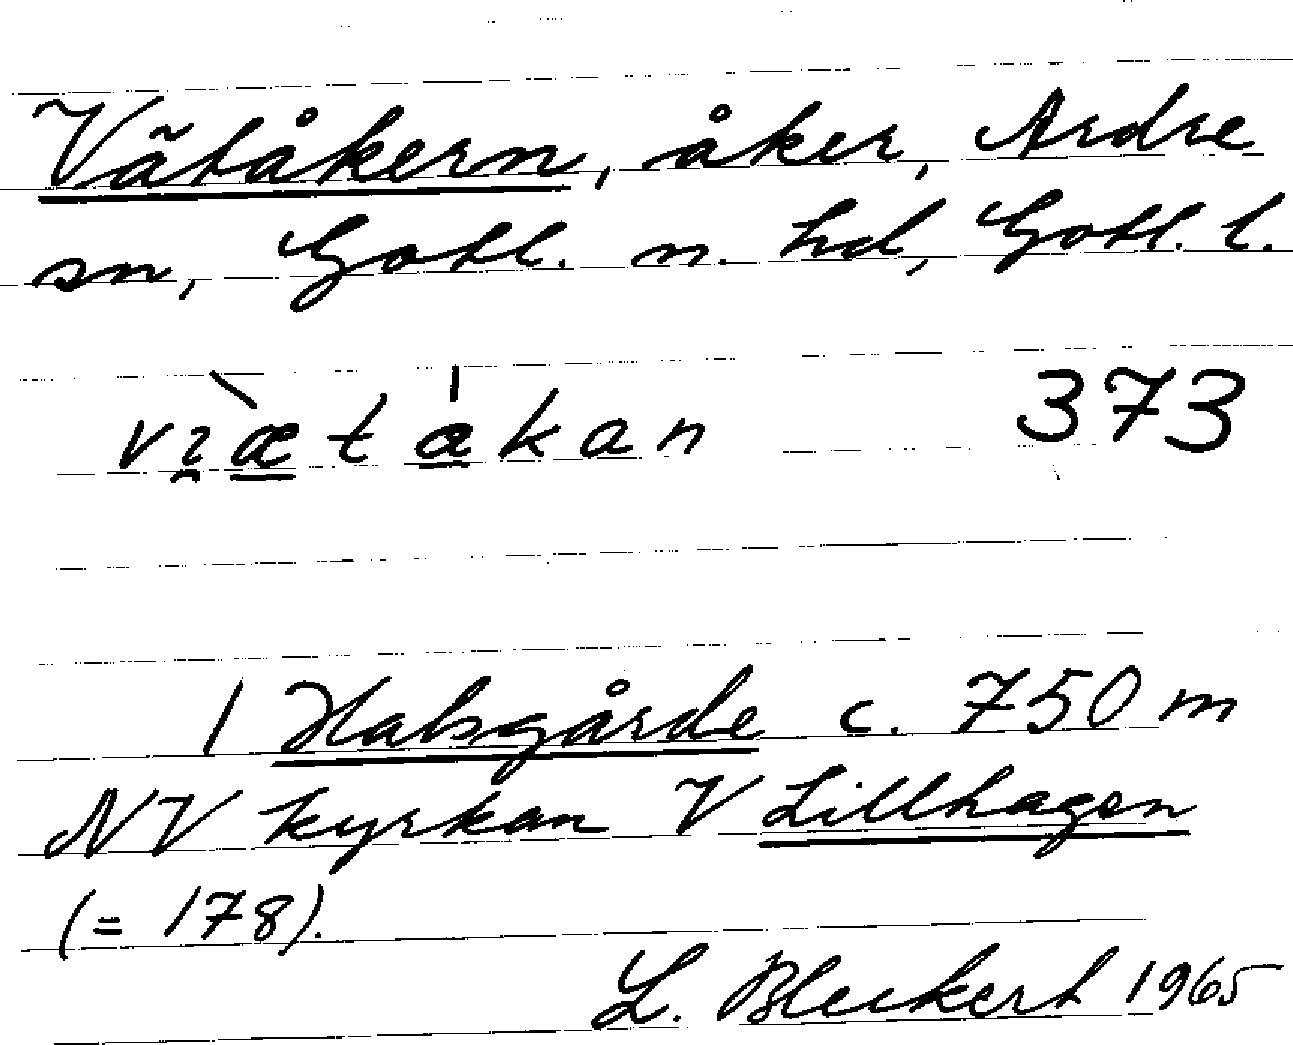 Våtåkern, åker, Ardre
sn, Gotl. n. hd, Gotl. l.
vı̯æ̀tákan 373
1 Halsgårde c. 750 m
NV kyrkan V Lillhagen
(= 178).
L. Bleckert 1965